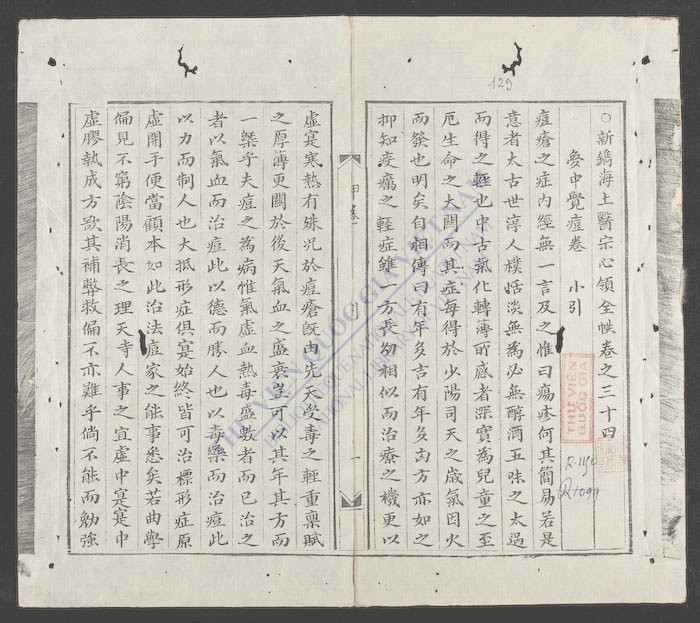 129
○新鐫海上醫宗心領全帙卷之三十四
夢中覺痘卷 小引
痘瘡之症內經無一言及之惟曰瘍疹何其簡易若是
意者太古世淳人樸恬淡無為必無醇酒五味之太過
而得之輕也中古氣化轉薄所感者深實為兒童之至
厄生命之大關而其症每得於少陽司天之歲氣因火
而發也明矣自相傳曰有年多吉有年多凶方亦如之
抑知疫癘之輕症雖一方長幼相似而治療之機更以
虛寔寒熱有殊况於痘瘡既由先天受毒之輕重稟賦
之厚薄更關於後天氣血之盛衰豈可以其年其方而
一槩乎夫痘之為病惟氣虛血熱毒盛數者而已治之
者以氣血而治痘此以德而勝人也以毒藥而治痘此
以力而制人也大抵形症俱寔始終皆可治標形症原
虛開手便當顧本如此治法痘家之能事悉矣若曲學
偏見不窮陰陽消長之理天寺人事之宜虛中寔寔中
虛膠執成方欲其補弊救偏不亦難乎倘不能而勉強
引
一
THƯ VIỆN
QUỐC GIA
R.1150
THƯ VIỆN QUỐC GIA VIỆT NAM
BIBLIOTHÈQUE NATIONALE DU VIETNAM
NATIONAL LIBRARY OF VIETNAM